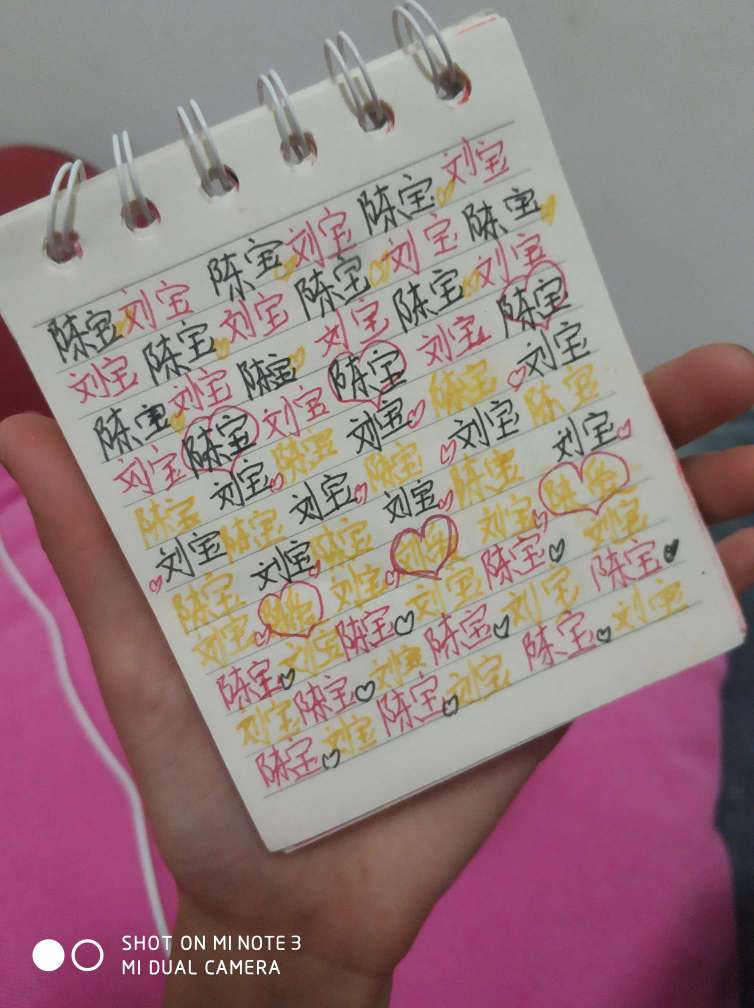 陈宝刘宝陈宝刘宝陈宝刘宝
刘宝陈宝刘宝陈宝刘宝陈宝
陈宝刘宝陈宝刘宝陈宝刘宝
刘宝陈宝刘宝陈宝刘宝陈宝
陈宝刘宝陈宝刘宝陈宝刘宝
刘宝陈宝刘宝陈宝刘宝陈宝
陈宝刘宝陈宝刘宝陈宝刘宝
刘宝陈宝刘宝刘宝陈宝
陈宝刘宝陈宝刘宝陈宝刘宝
刘宝陈宝刘宝陈宝刘宝陈宝
陈宝刘宝陈宝刘宝陈宝刘宝
SHOT ON MI NOTE 3
MI DUAL CAMERA